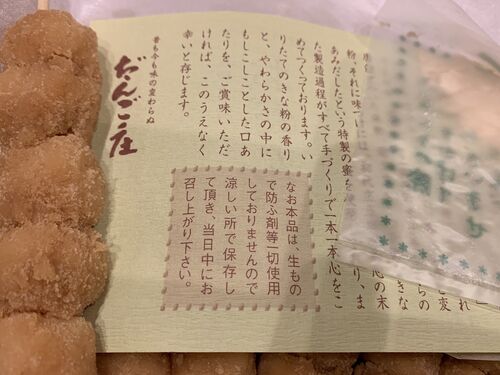 粉、それに味一
あみだしたという特製の蜜を
た製造過程がすべて手づくりで一本一本心をこ
めてつくっております。い
りたてのきな粉の香り
と、やわらかさの中に
もしこしことした口あ
たりを、ご賞味いただ
ければ、このうえなく
幸いと存じます。
なお本品は、生もの
で防ふ剤等一切使用
しておりませんので
涼しい所で保存し
て頂き、当日中にお
召し上がり下さい。
昔も今も味の変わらぬ
だんご庄